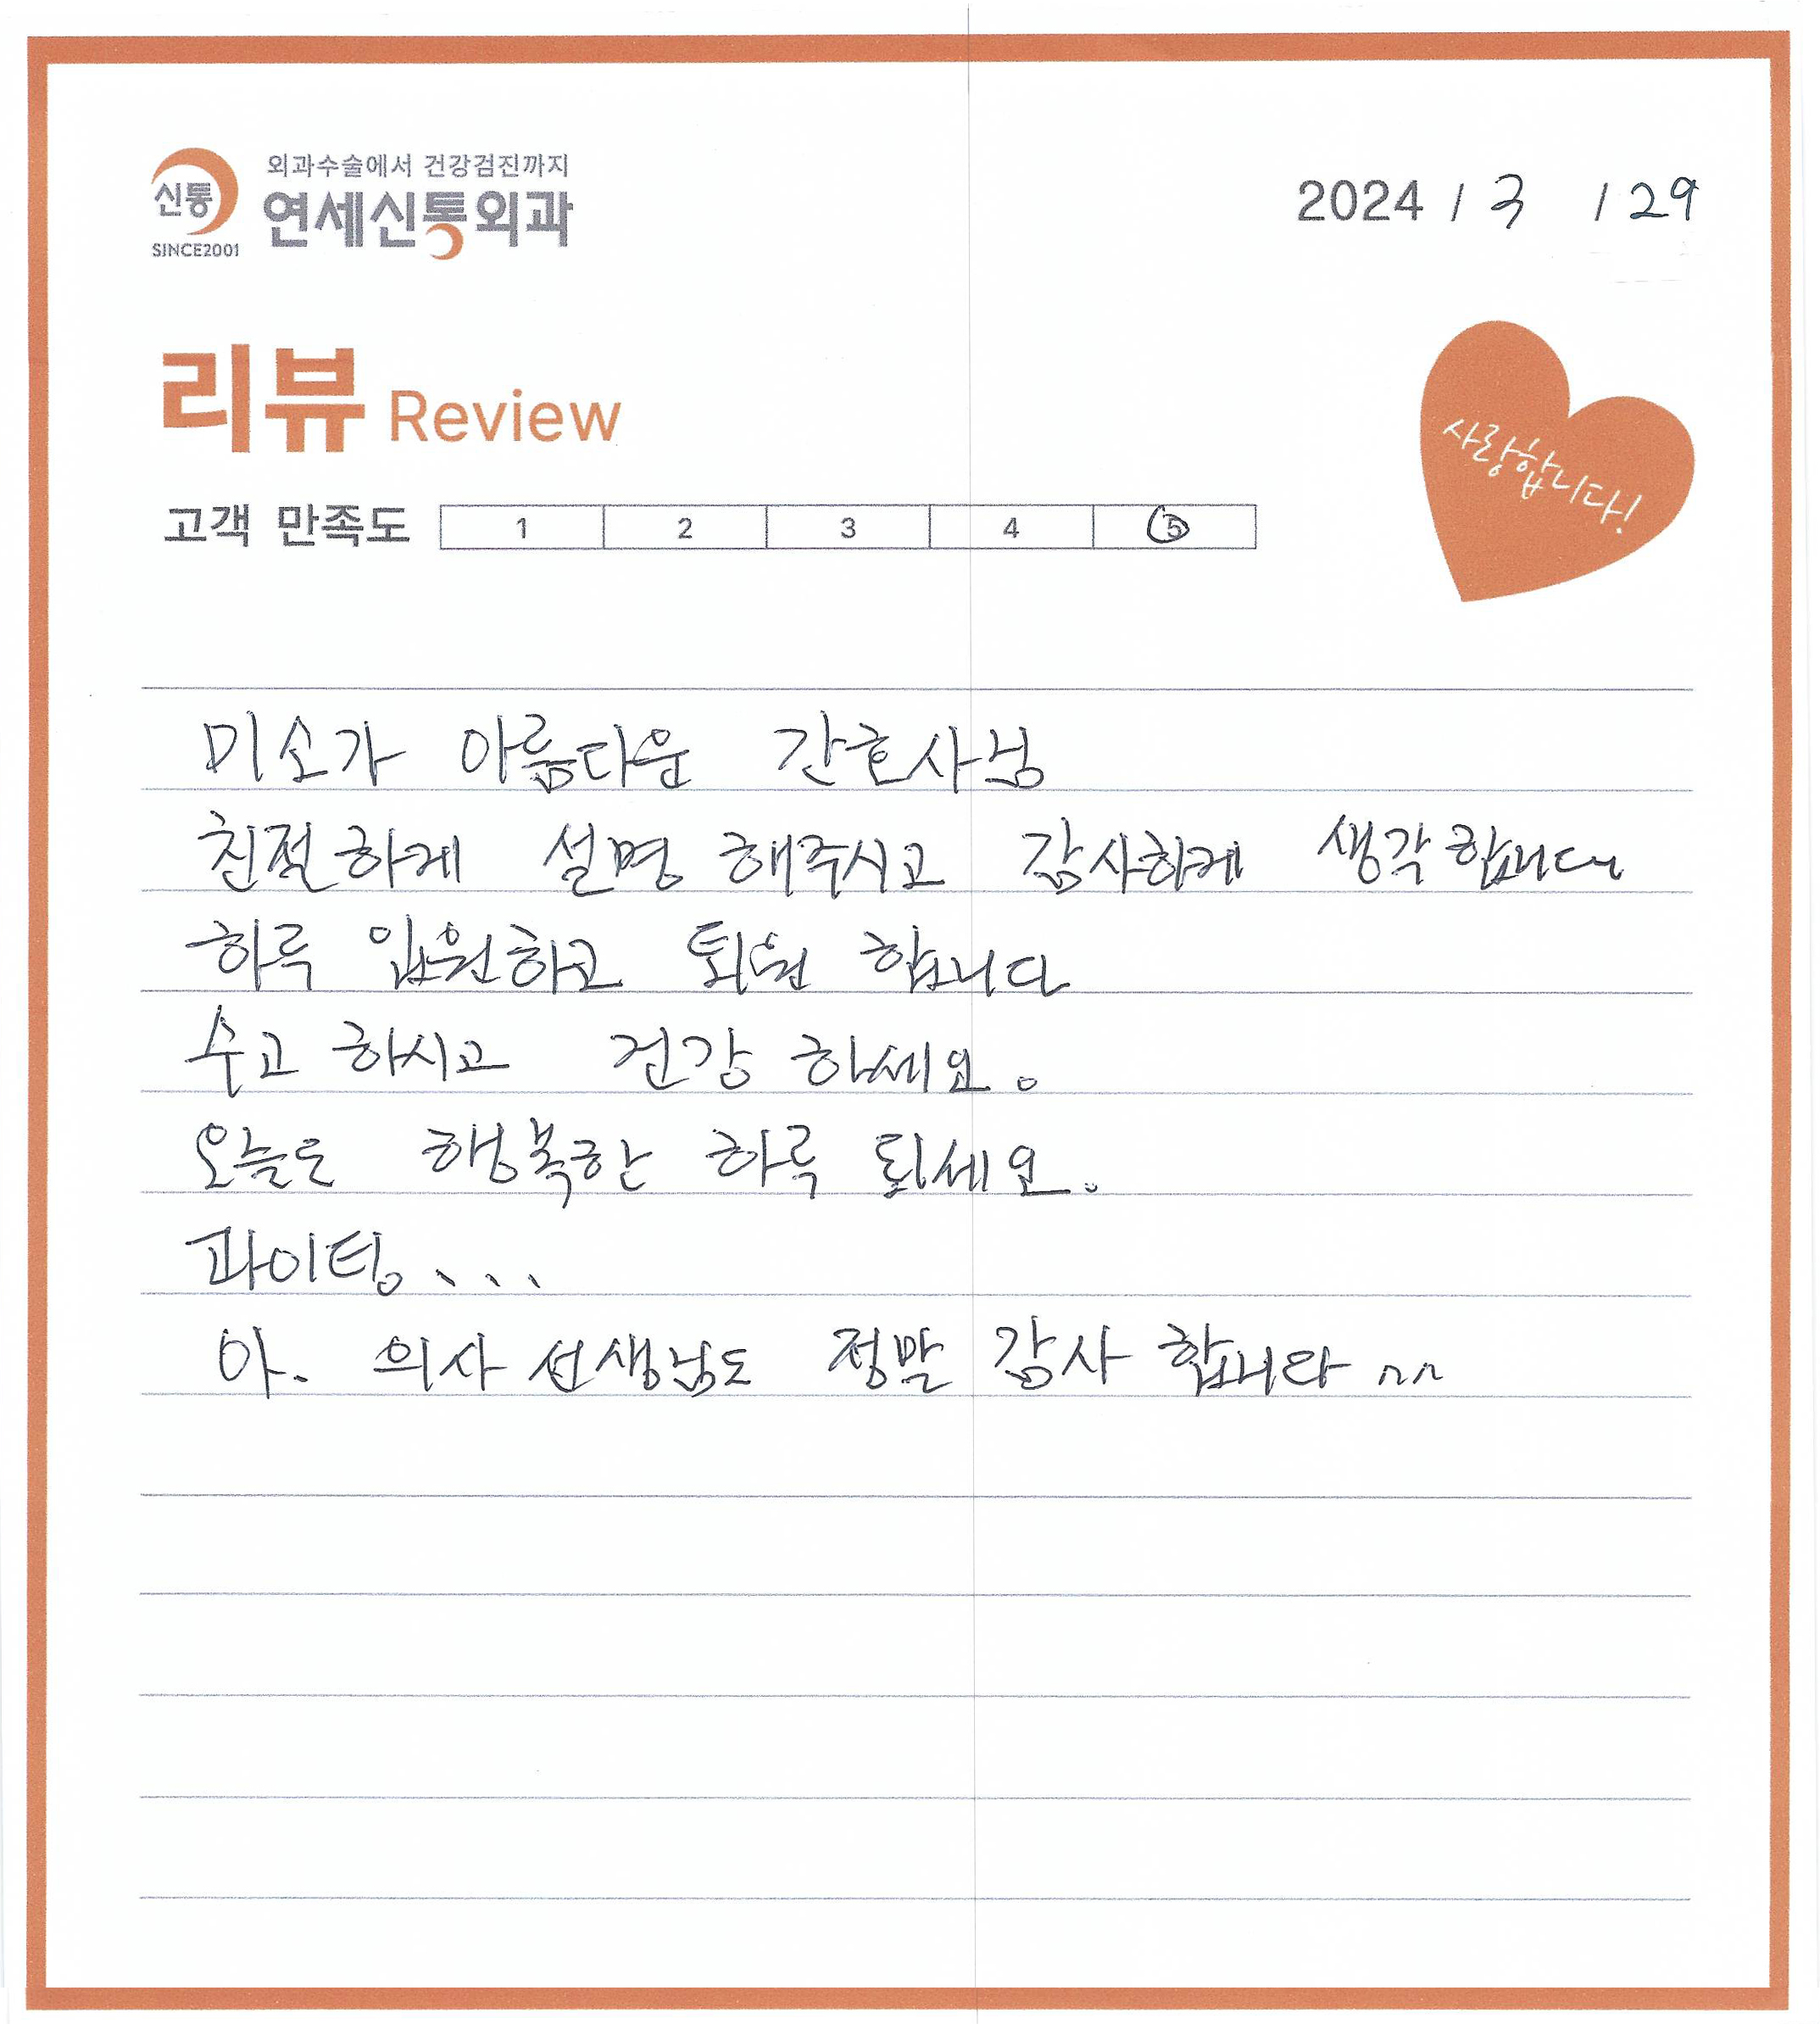 외과수술에서 건강검진까지
신통 연세신통외과
SINCE2001
2024 / 3 / 29
리뷰 Review
사랑합니다!
고객 만족도 1 2 3 4 5
미소가 아름다운 간호사님
친절하게 설명 해주시고 감사하게 생각합니다
하루 입원하고 퇴원 합니다
수고 하시고 건강 하세요.
오늘도 행복한 하루 되세요.
파이팅...
아. 의사 선생님도 정말 감사 합니다 ^^